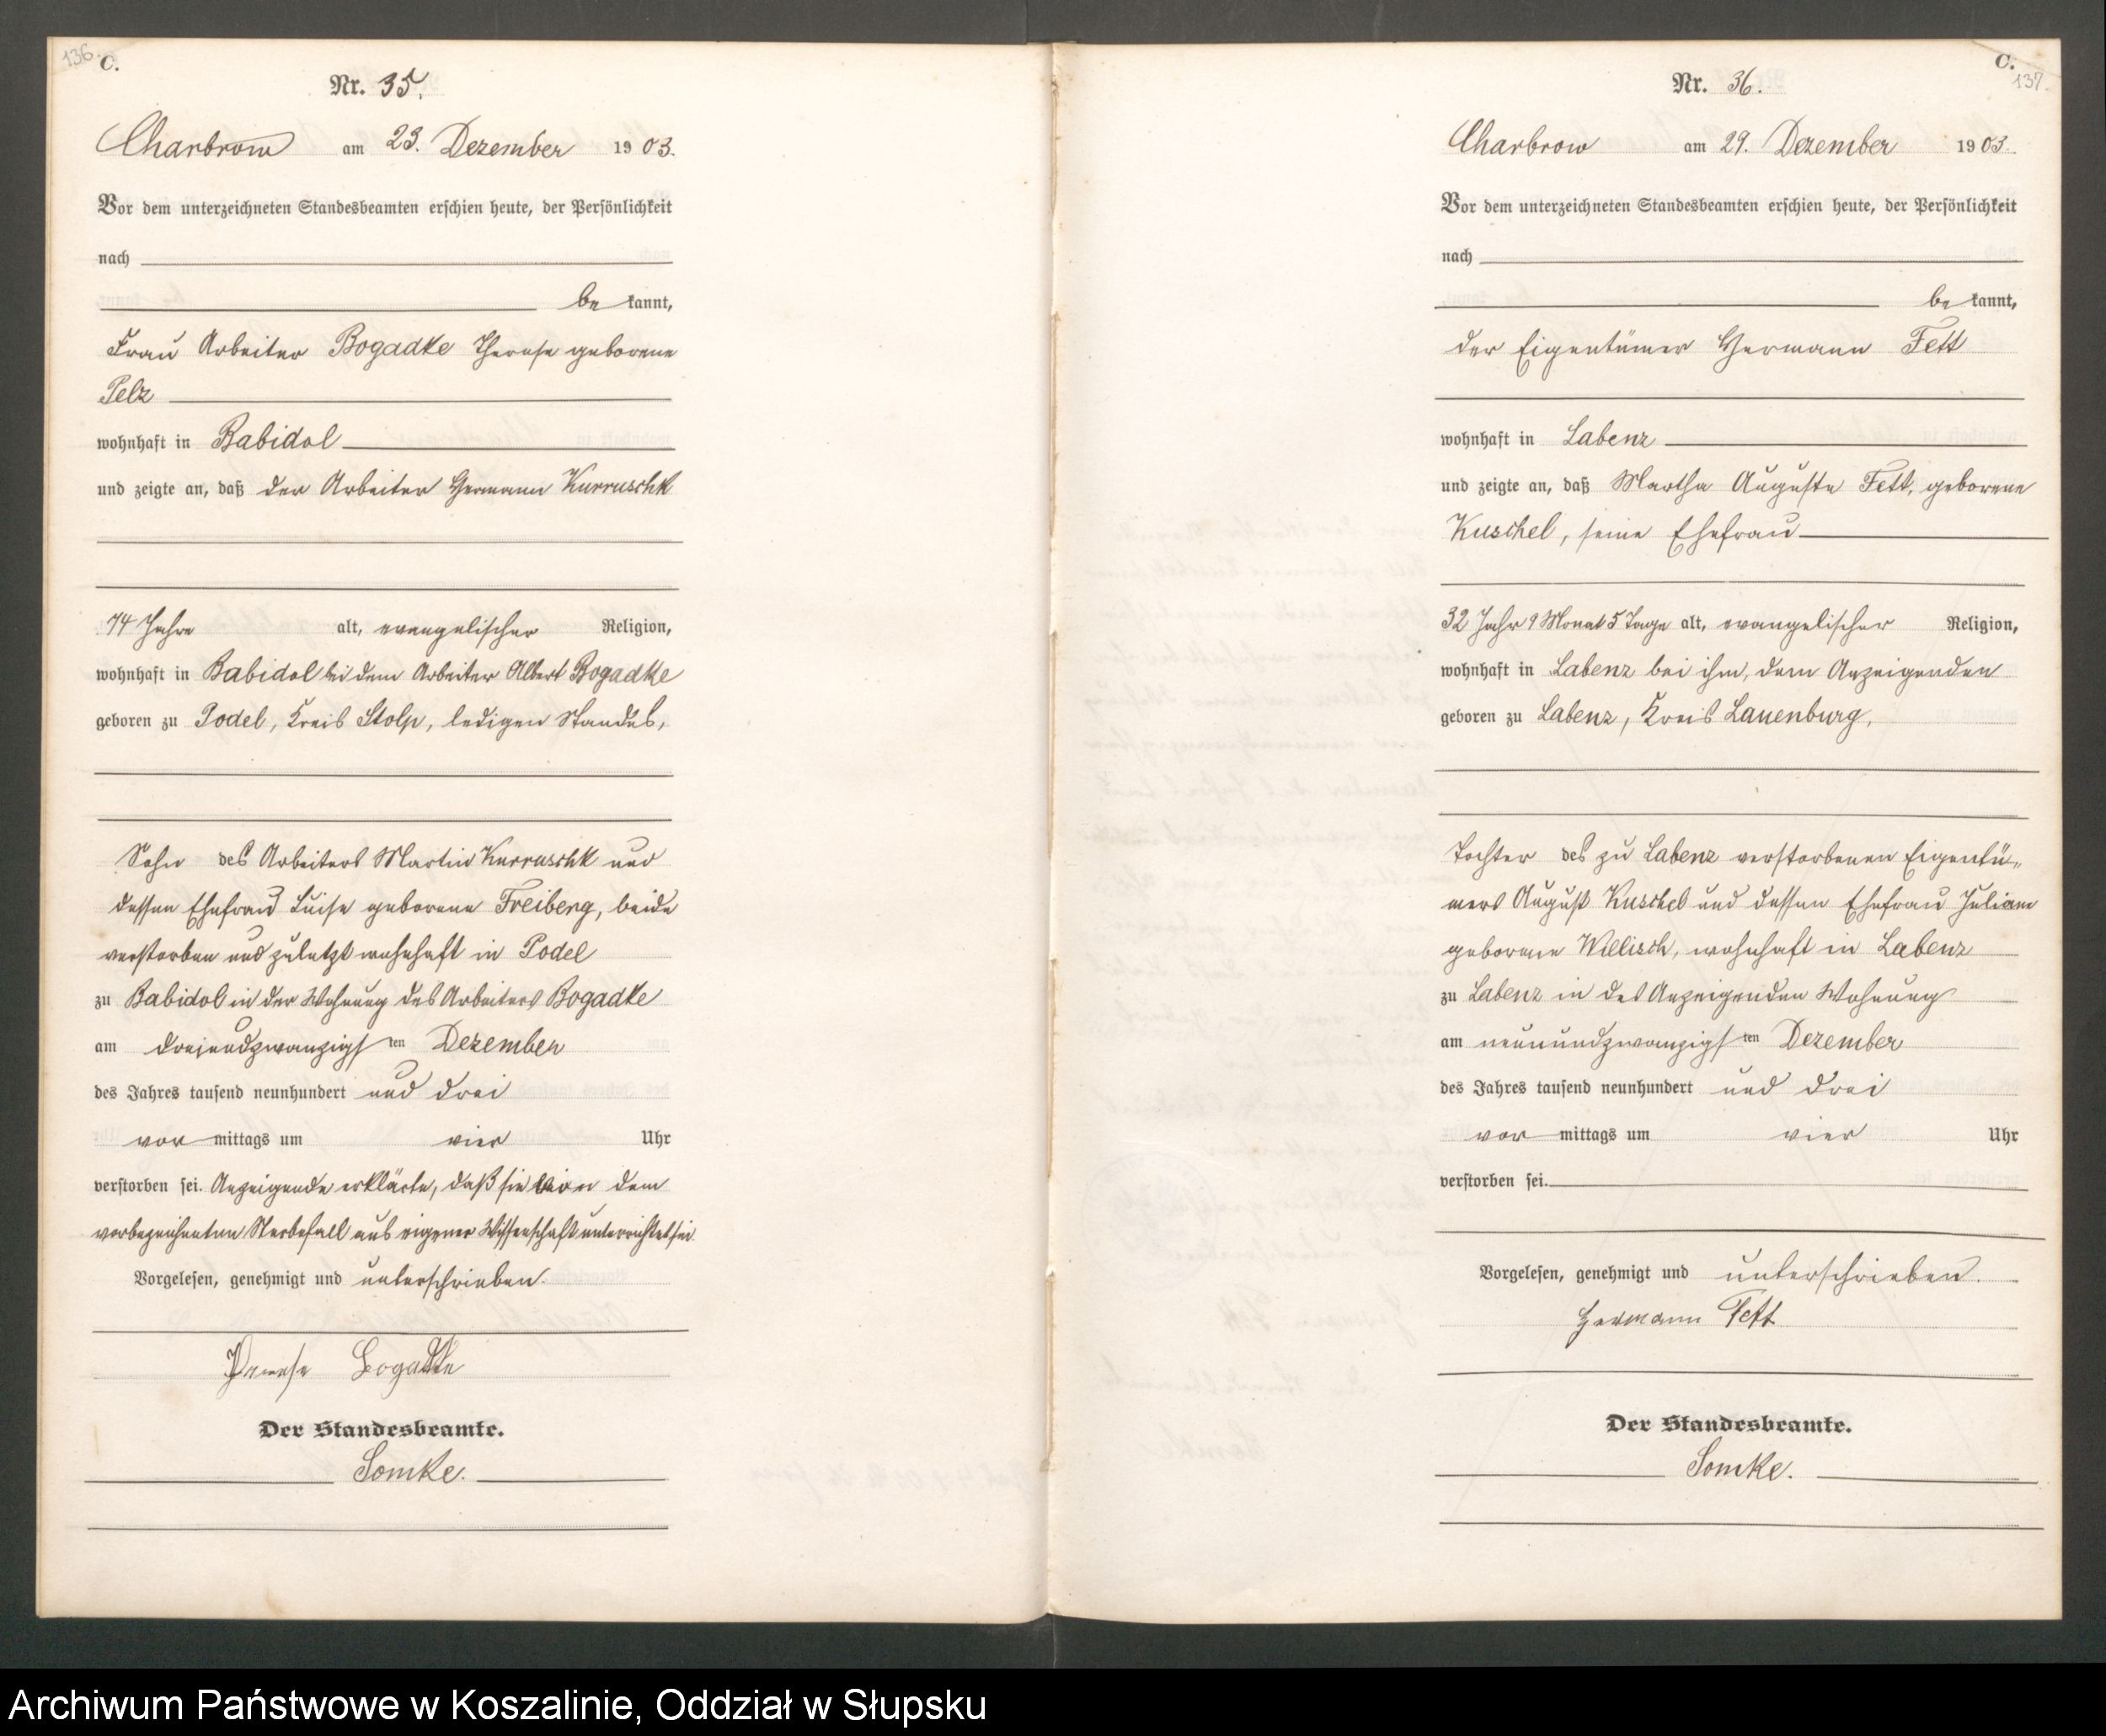 136.
C.
Nr. 35.
Charbrow am 23. Dezember 1903.
Vor dem unterzeichneten Standesbeamten erschien heute, der Persönlichkeit
nach
be kannt,
Frau Arbeiter Bogadke Therese geborene
Pelz
wohnhaft in Babidol
und zeigte an, daß der Arbeiter Hermann Kurruschk
74 Jahre alt, evangelischer Religion,
wohnhaft in Babidol bei dem Arbeiter Albert Bogadke
geboren zu Podel, Kreis Stolp, ledigen Standes,
Sohn des Arbeiters Martin Kurruschk und
dessen Ehefrau Luise geborene Freiberg, beide
verstorben und zuletzt wohnhaft in Podel
zu Babidol in der Wohnung des Arbeiters Bogadke
am dreiundzwanzigsten Dezember
des Jahres tausend neunhundert und drei
vor mittags um vier Uhr
verstorben sei. Anzeigende erklärte, daß sie von dem
vorbezeichneten Sterbefall aus eigener Wissenschaft unterrichtet sei.
Vorgelesen, genehmigt und unterschrieben.
Therese Bogadke
Der Standesbeamte.
Somke.
C.
137.
Nr. 36.
Charbrow am 29. Dezember 1903.
Vor dem unterzeichneten Standesbeamten erschien heute, der Persönlichkeit
nach
be kannt,
der Eigentümer Hermann Fett
wohnhaft in Labenz
und zeigte an, daß Martha Auguste Fett, geborene
Kuschel, seine Ehefrau
32 Jahr 9 Monat 5 Tage alt, evangelischer Religion,
wohnhaft in Labenz bei ihm, dem Anzeigenden
geboren zu Labenz, Kreis Lauenburg,
Tochter des zu Labenz verstorbenen Eigentü-
mers August Kuschel und dessen Ehefrau Juliane
geborene Willisch, wohnhaft in Labenz
zu Labenz in des Anzeigenden Wohnung
am neunundzwanzigsten Dezember
des Jahres tausend neunhundert und drei
vor mittags um vier Uhr
verstorben sei.
Vorgelesen, genehmigt und unterschrieben.
Hermann Fett
Der Standesbeamte.
Somke.
Archiwum Państwowe w Koszalinie, Oddział w Słupsku